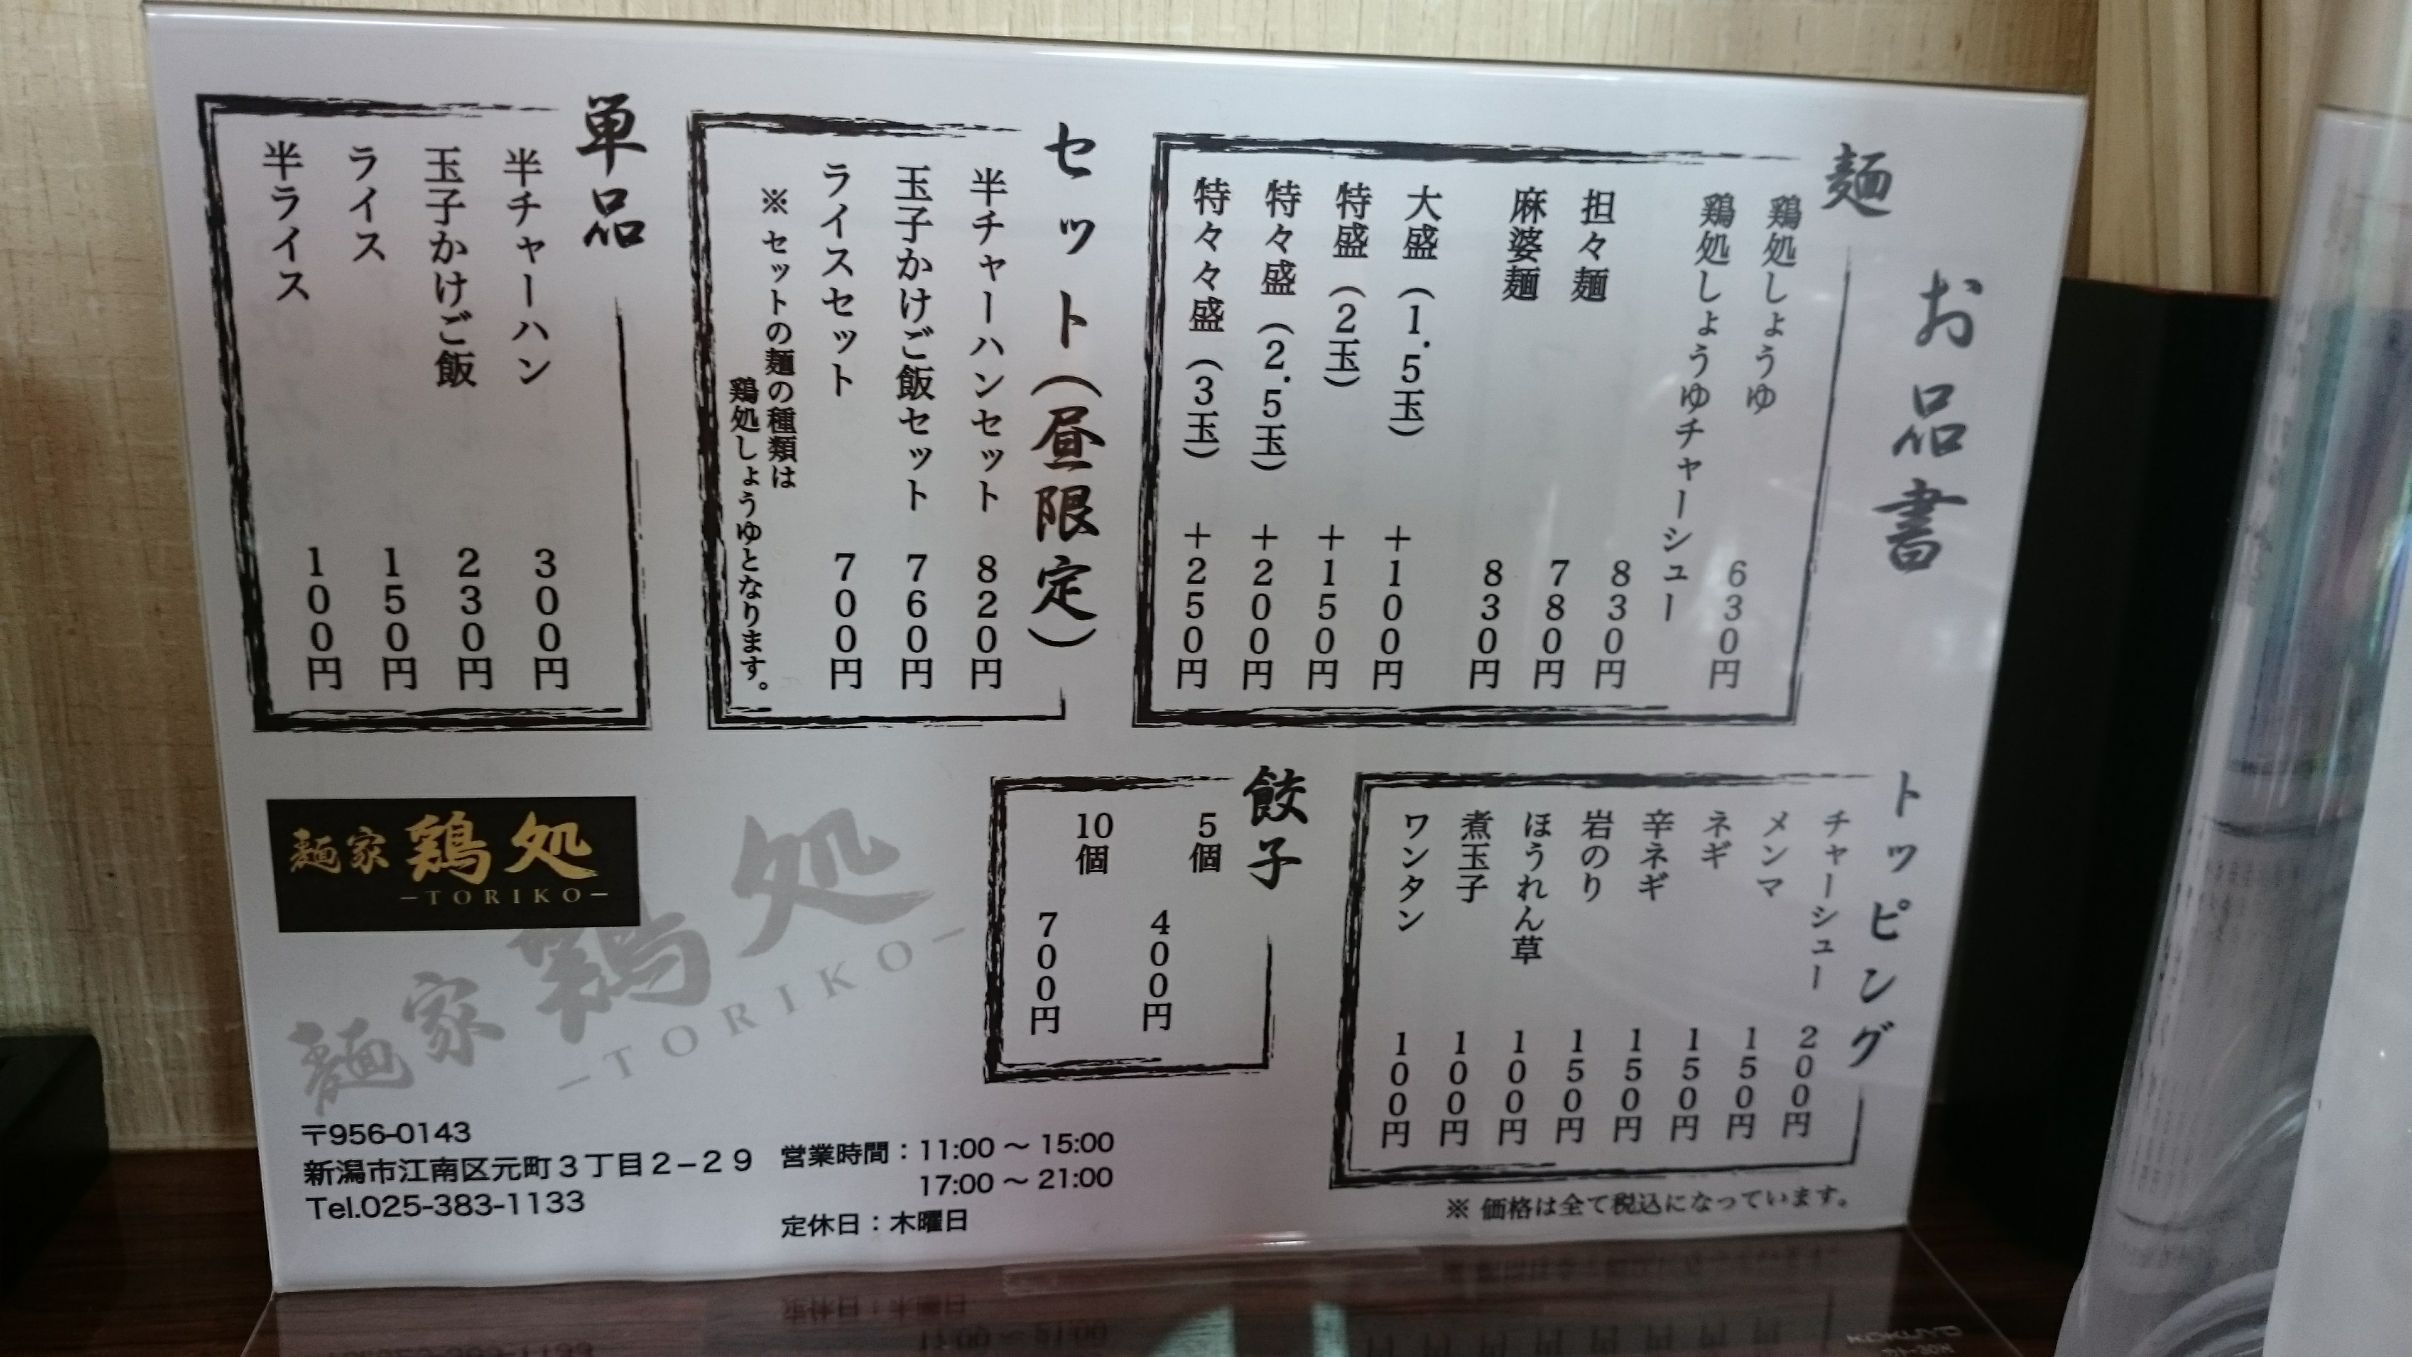 お品書
麺
鶏処しょうゆ 630円
鶏処しょうゆチャーシュー 830円
担々麺 780円
麻婆麺 830円
大盛（1.5玉） ＋100円
特盛（2玉） ＋150円
特々盛（2.5玉） ＋200円
特々々盛（3玉） ＋250円
セット（昼限定）
半チャーハンセット 820円
玉子かけご飯セット 760円
ライスセット 700円
※ セットの麺の種類は
鶏処しょうゆとなります。
単品
半チャーハン 300円
玉子かけご飯 230円
ライス 150円
半ライス 100円
トッピング
チャーシュー 200円
メンマ 150円
ネギ 150円
辛ネギ 150円
岩のり 150円
ほうれん草 100円
煮玉子 100円
ワンタン 100円
※ 価格は全て税込になっています。
餃子
5個 400円
10個 700円
麺家 鶏処
−TORIKO−
麺家 鶏処
−TORIKO−
〒956-0143
新潟市江南区元町３丁目２−２９
Tel.025-383-1133
営業時間：11:00 〜 15:00
17:00 〜 21:00
定休日：木曜日
KOKUYO